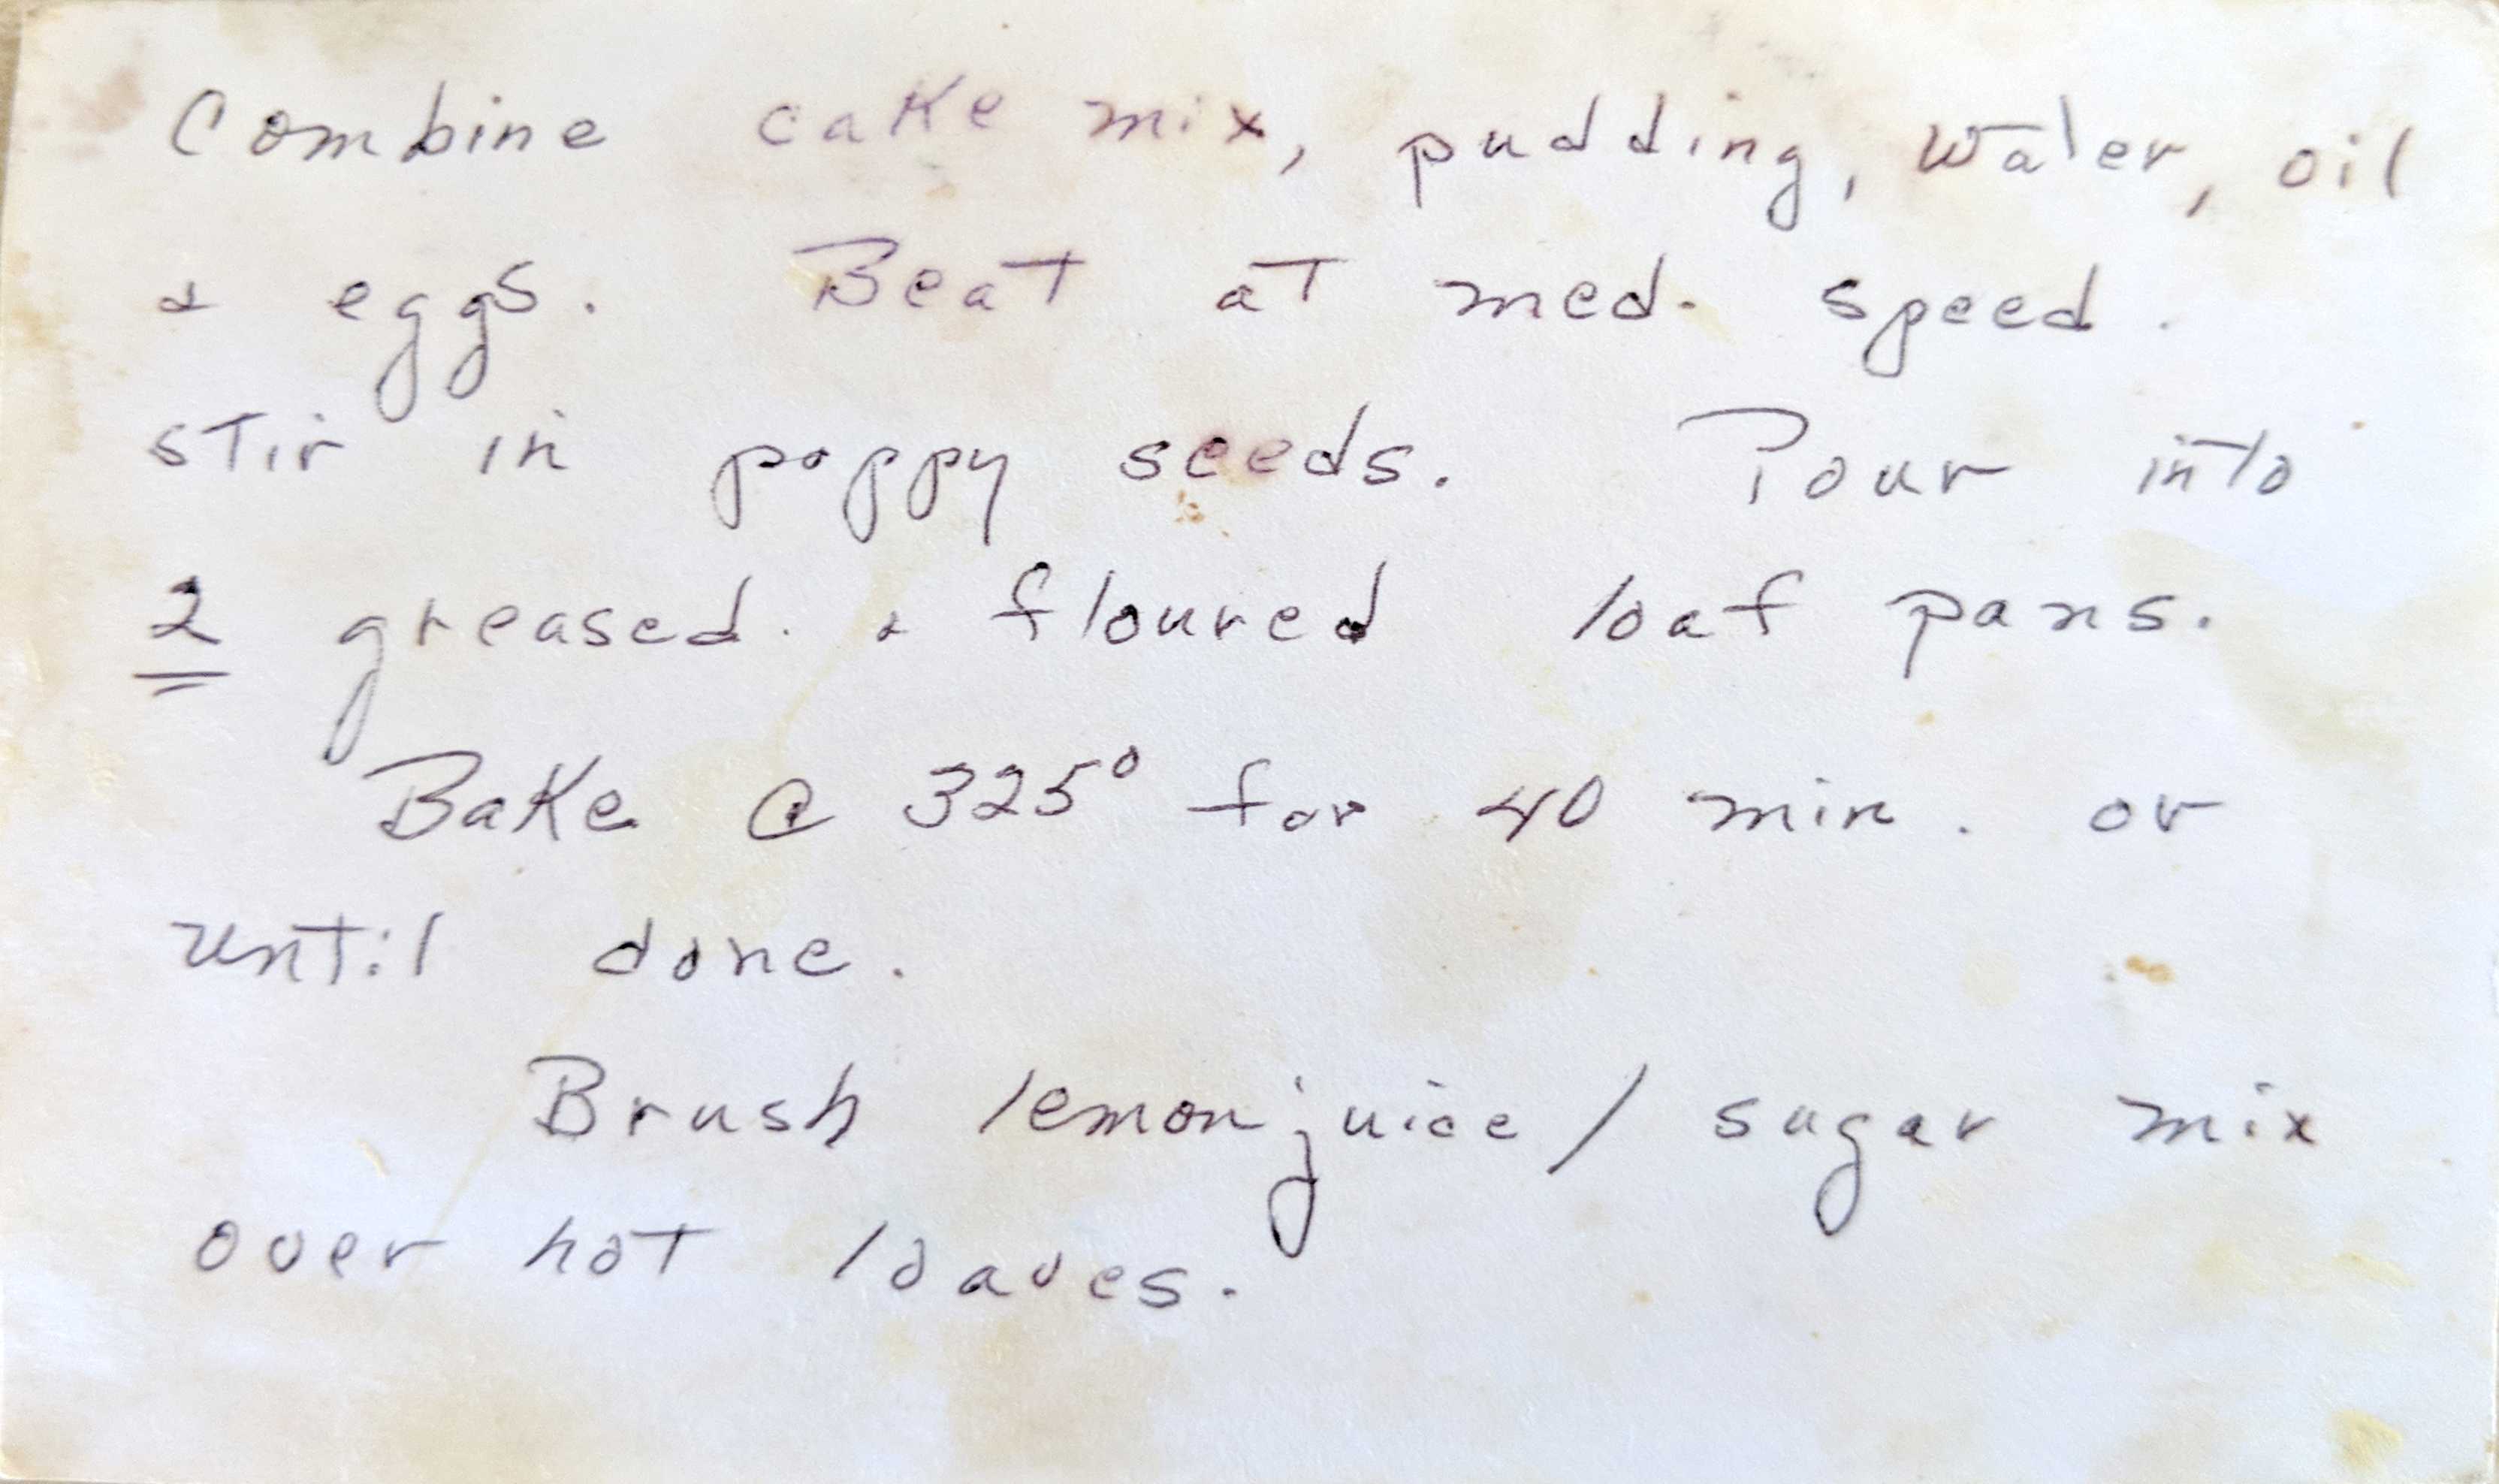 Combine cake mix, pudding, water, oil
& eggs. Beat at med. speed.
stir in poppy seeds. Pour into
2 greased & floured loaf pans.
Bake @ 325° for 40 min. or
until done.
Brush lemon juice / sugar mix
over hot loaves.